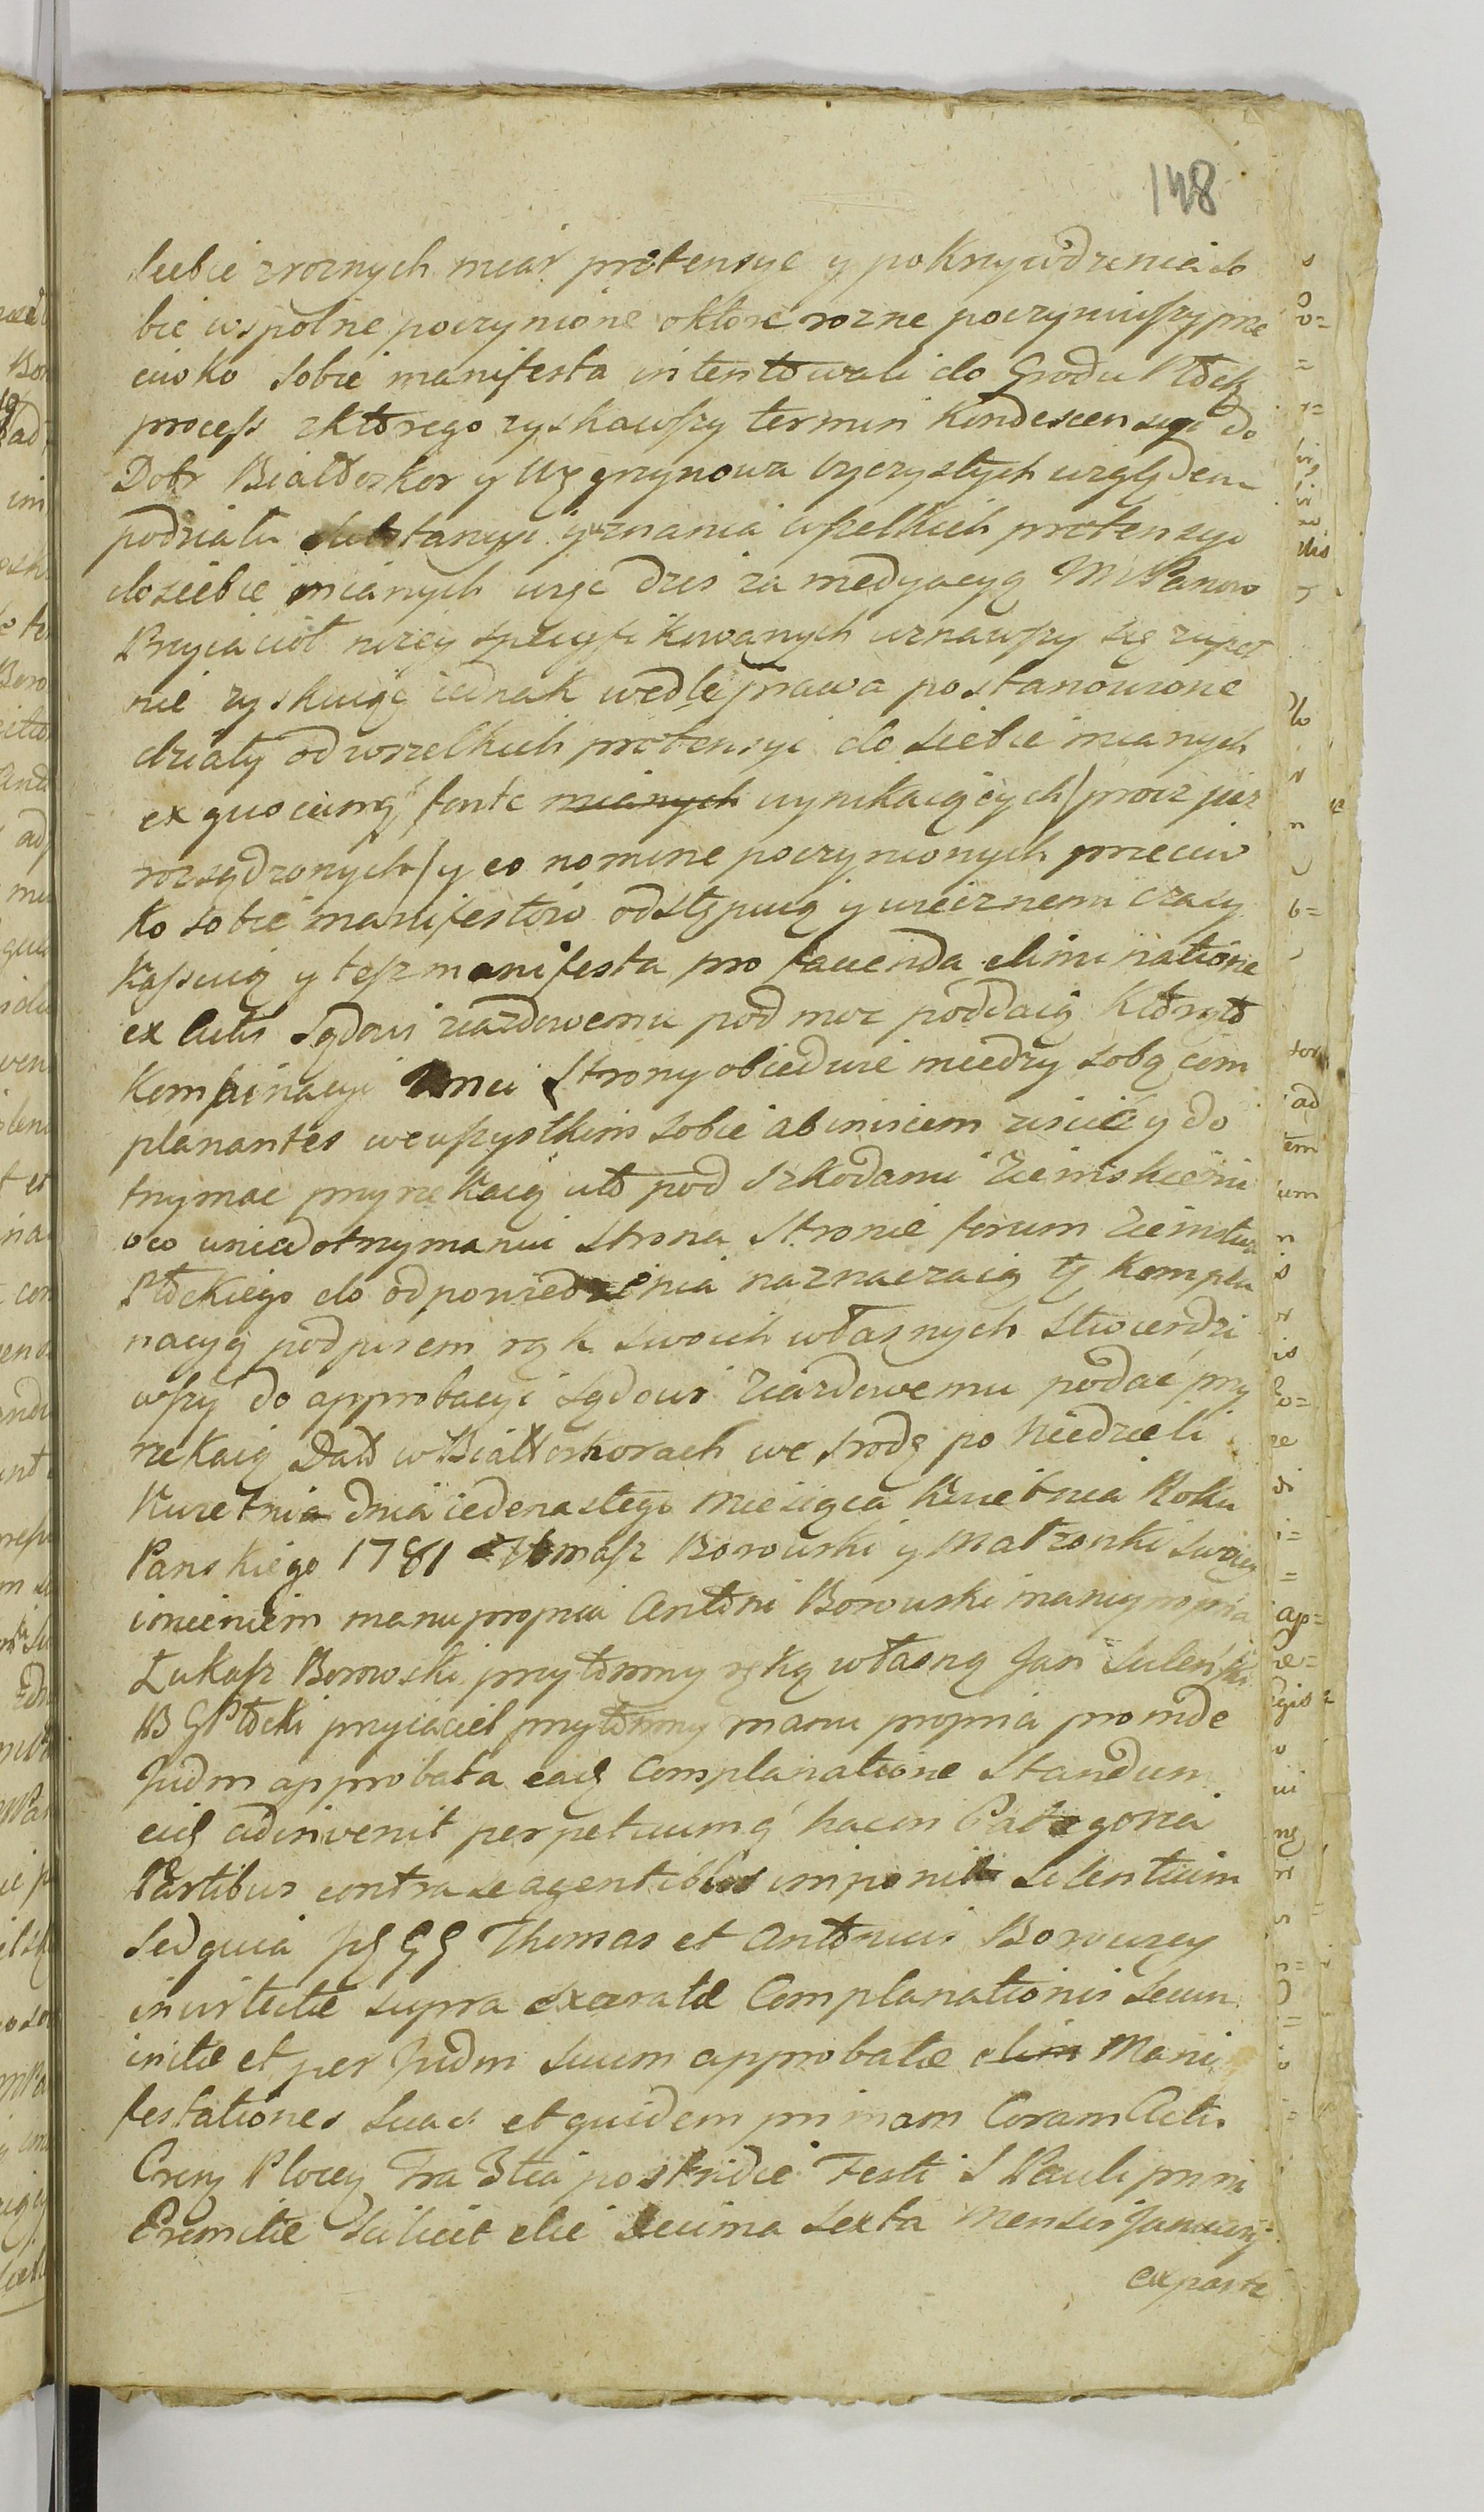 148
siebie zroznych miar pretensye y pokrzywdzenia so
bie wspolne poczynione oktore rozne poczyniwszy prze
ciwko sobie manifesta intentowali do Grodu Płock
process zktorego zyskawszy termin Kondescensyi do
Dobr Białoskor y Węgrzynowa Oyczystych względem
podziału substancyi y uznania wszelkich pretensyi
dosiebie mianych więc dzis za medyacyą WW Panow
Przyiacioł nizey specyfikowanych uznawszy się zupeł
nie zyskuiąc iednak wedle prawa postanowione
działy odwszelkich pretensyi do siebie mianych
ex quocumq fonte mianych wynikaiących/procz iuz
rozsądzonych/y eo nomine poczynionych przeciw
ko sobie manifestow odstępuią y wiecznemi czasy
Kassuią y tesz manifesta pro facienda eliminatione
ex Actis Sądowi ziazdowemu pod moc poddaią Ktorey to
Komplnacyi Strony obiedwie miedzy sobą com
planantes wewszystkim sobie ab invicem ziscić y do
trzymac przyrzekaią a to pod szkodami Ziemskiemi
oco wniedotrzymaniu Strona Stronie forum Ziemstwa
Płockiego do odpowiedzenia naznaczaią tę Kompla
nacyą podpisem rąk swoich własnych stwierdzi
wszy do approbacyi Sądowi Ziazdowemu podać przy
rzekaią Dało w Białoskorach we srodę po Niedzieli
Kwietnia dnia iedenastego Miesiąca Kwietnia Roku
Panskiego 1781 Tomasz Borowski y Małzonki swoiey
imieniem manu propria Antoni Borowski manu propria
Łukasz Borowski przytomny ręką własną Jan Suleński
B G Płocki przyiaciel przytomny manu propria proinde
Judm approbata eaq Complanatione Standum
eiq adinvenit perpetuumq hac in Categoria
Partibus contra se agentibus imponit silentium
Sed quia pq GG Thomas et Antonius Borowscy
in virtute supra exaratæ Complanationis secum
initæ et per Judm suum approbatæ olim Mani
festationes suas et quidem primam Coram Actis
Cren Plocen Fra 3tia postridie Festi S Pauli primi
Eremitæ scilicet die decima sexta Mensis Januarij
ex parte